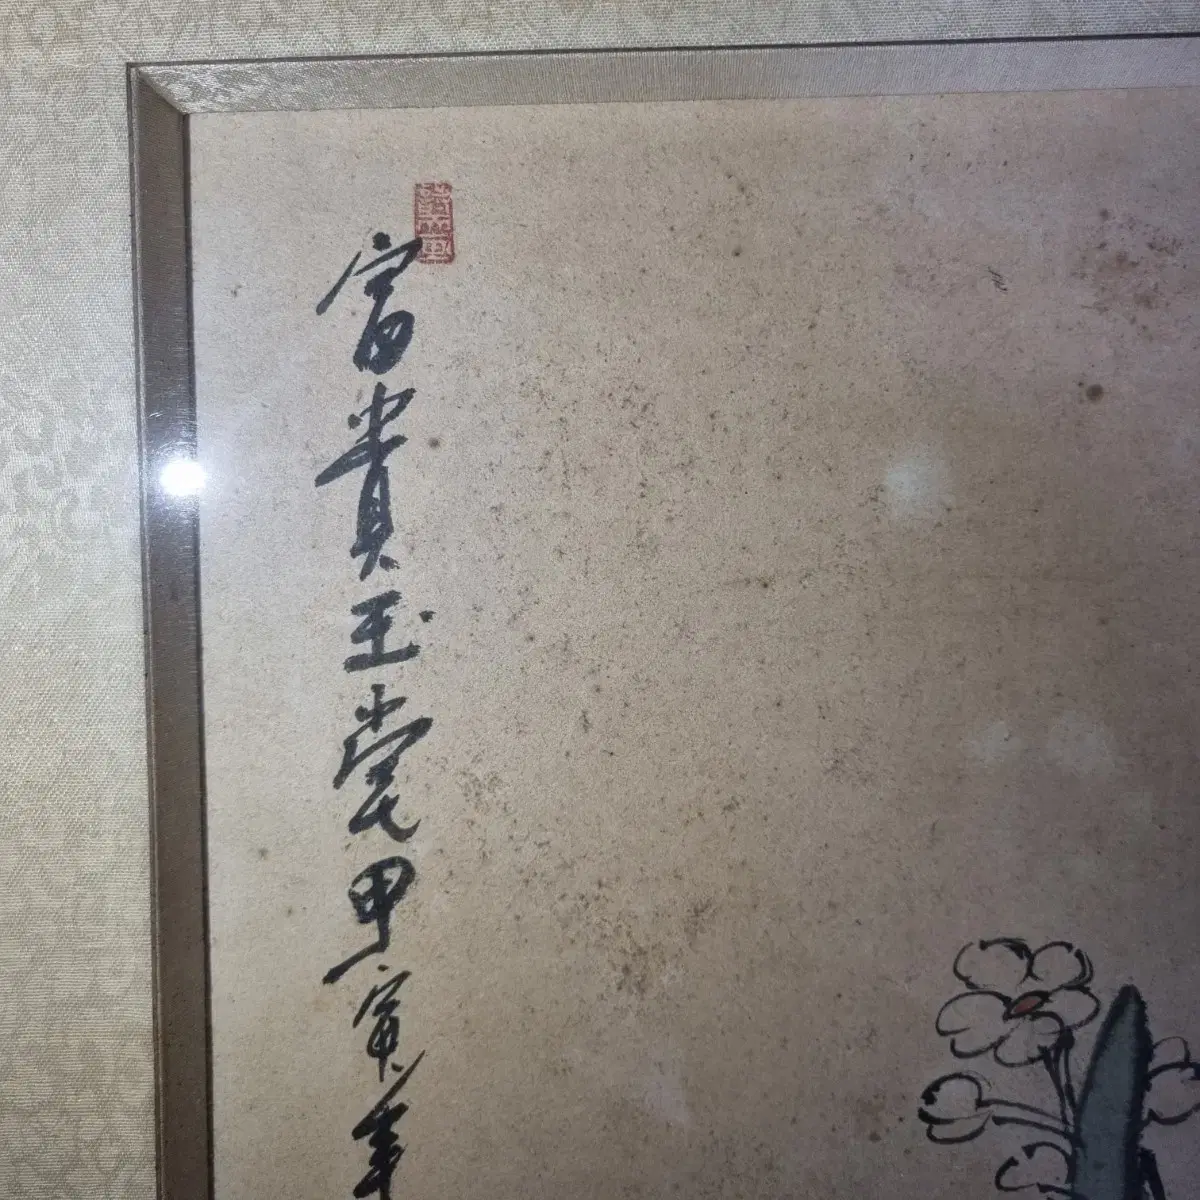 富貴玉堂甲寅年